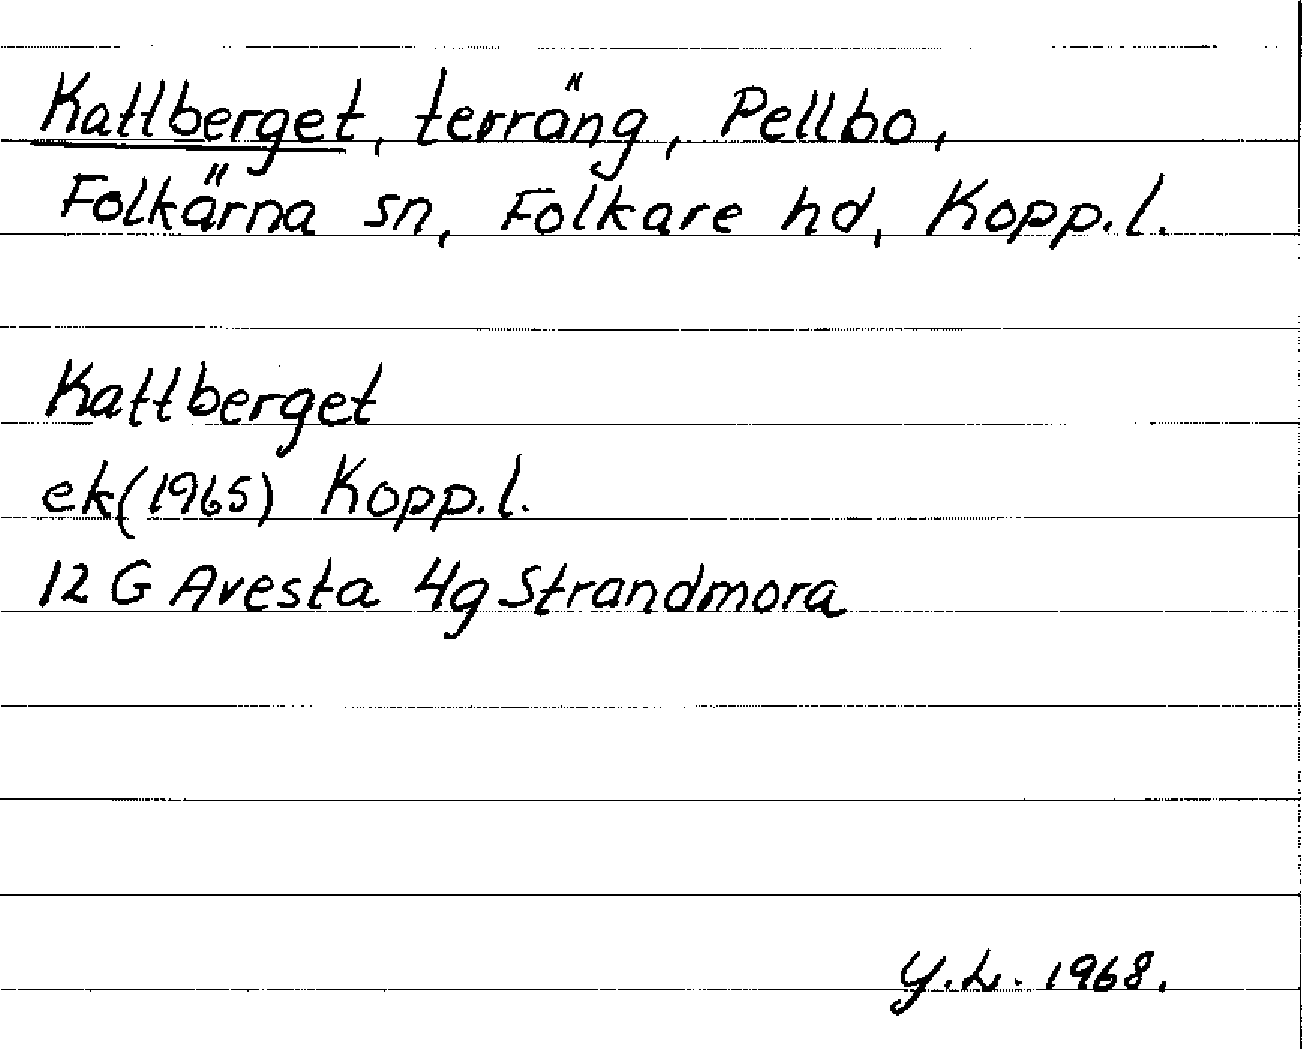 Kattberget, terräng, Pellbo,
Folkärna sn, Folkare hd, Kopp.l.
Kattberget
ek(1965) Kopp.l.
12 G Avesta 4g Strandmora
Y.L. 1968.